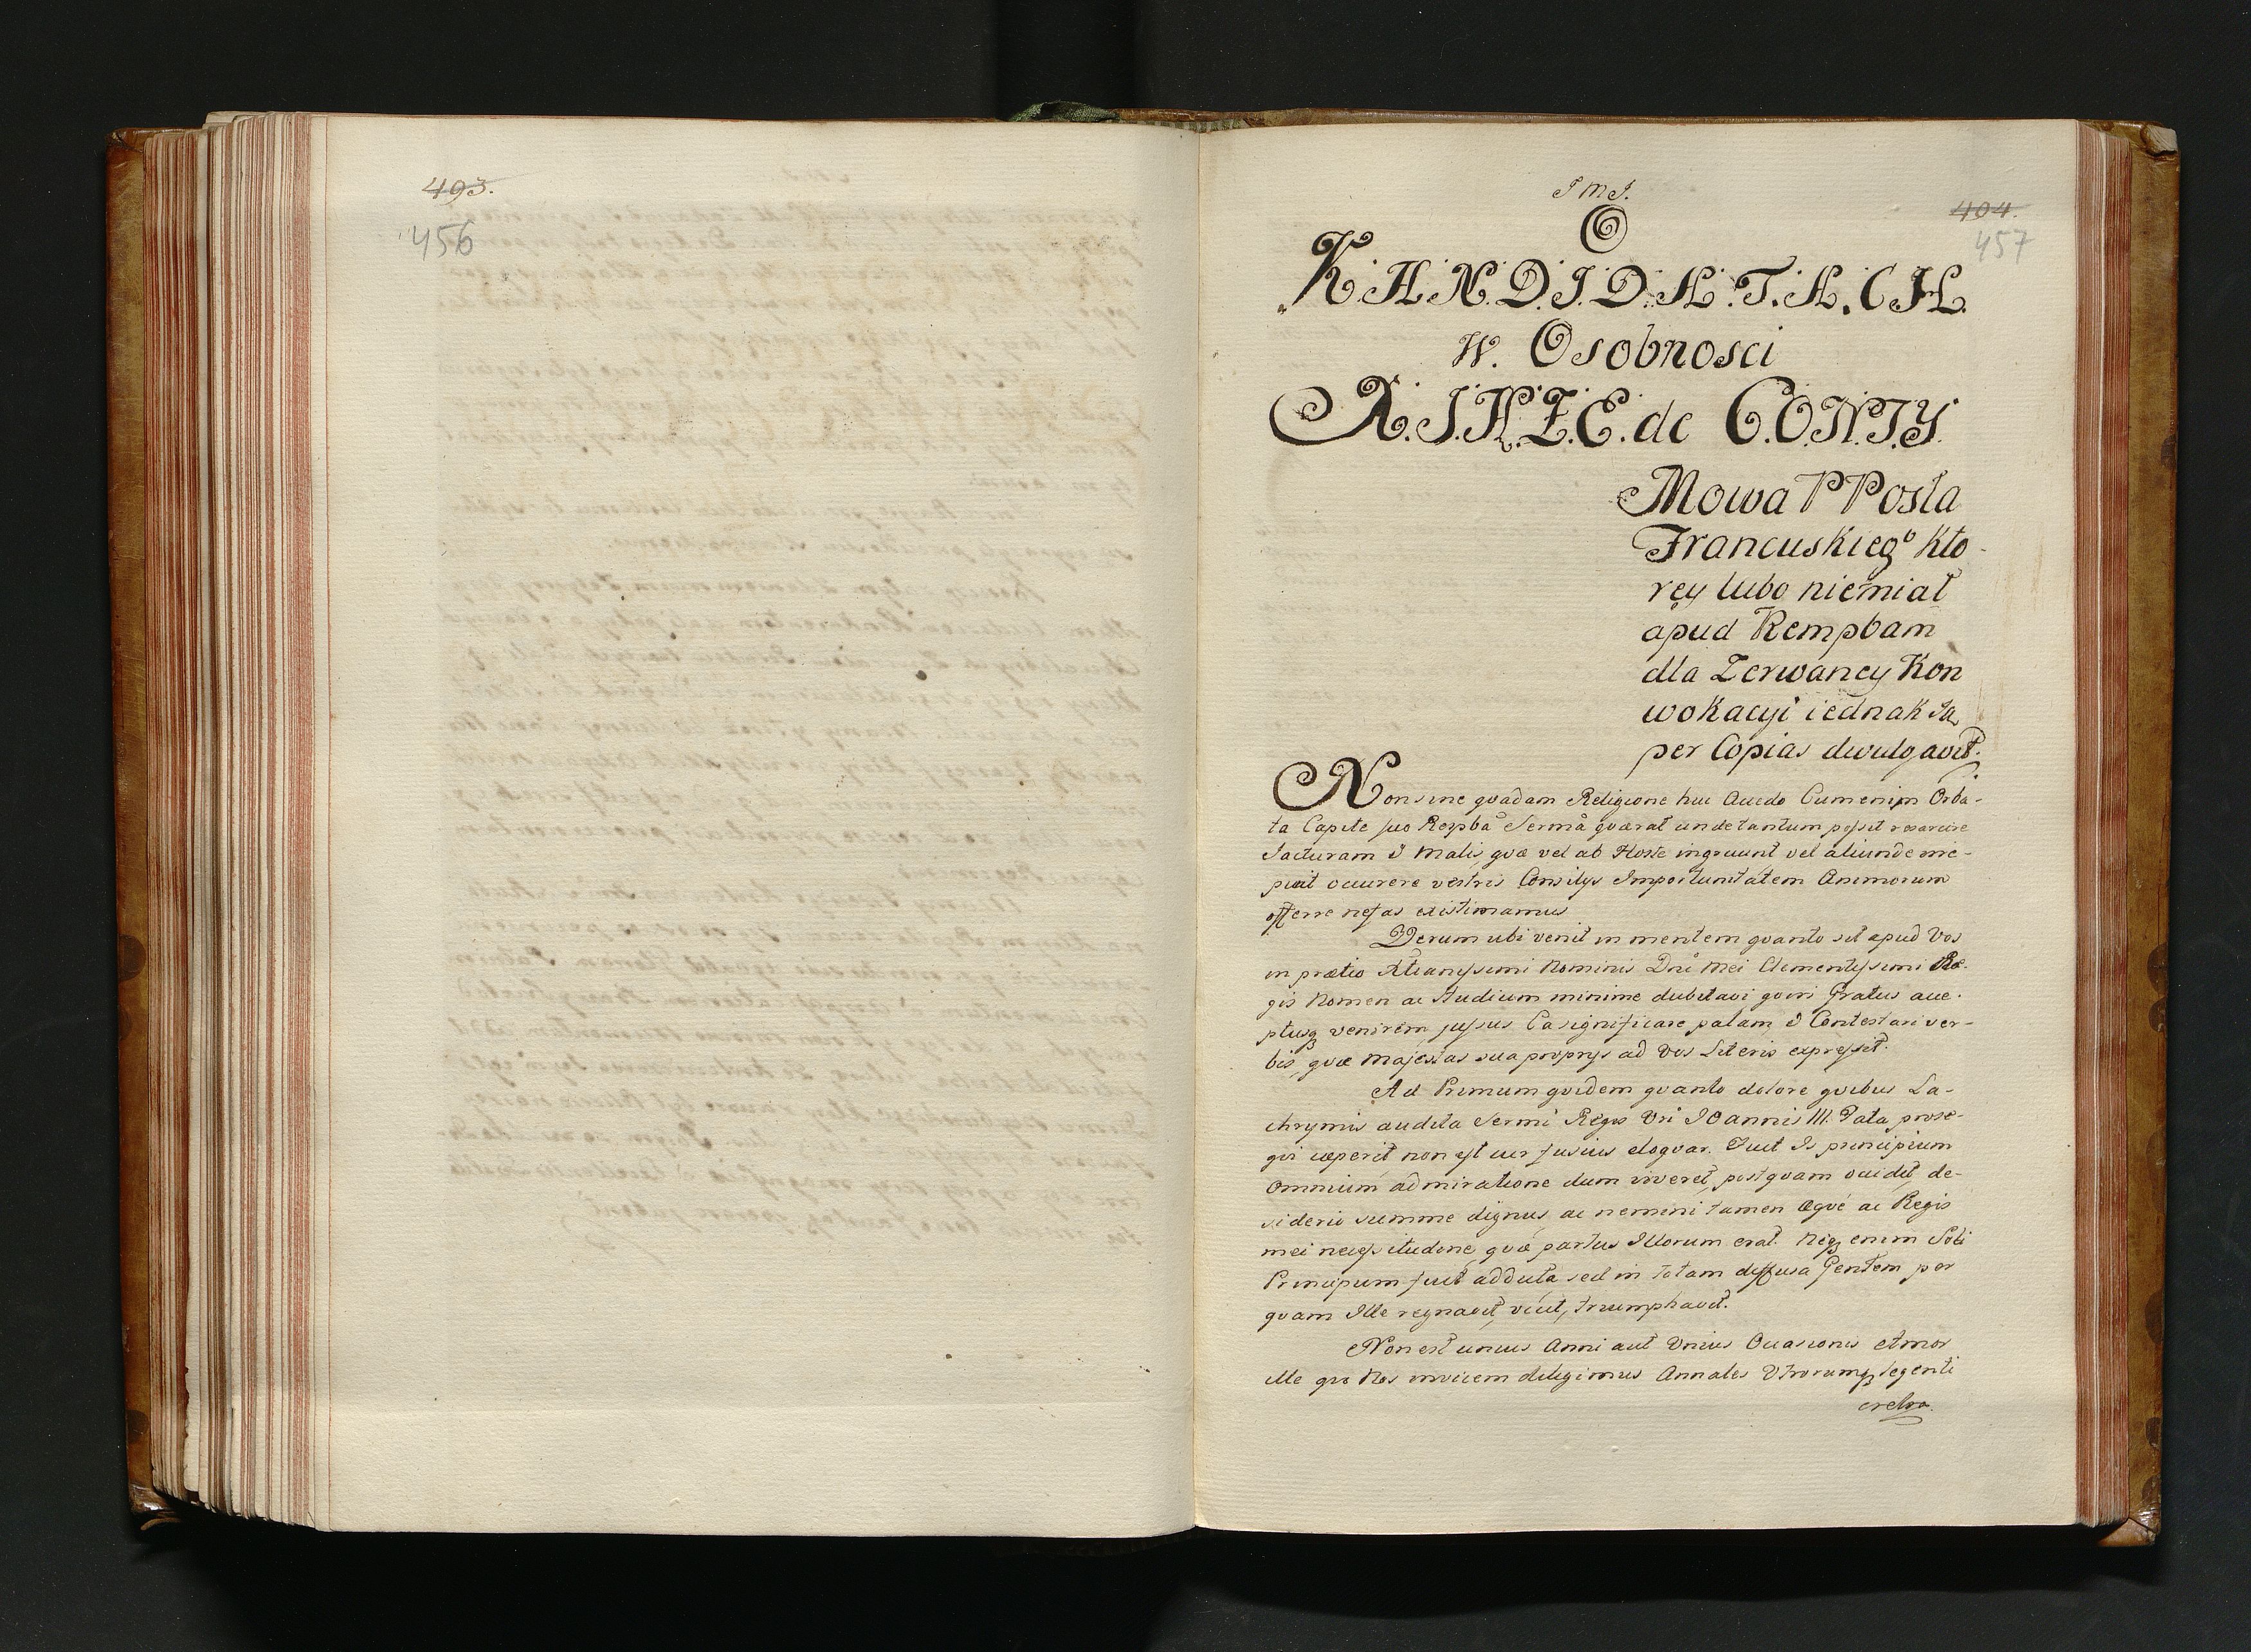 493.
456
J M J.
404.
457
O
K.A.N.D.I.D.A.T.A.CH.
w. Osobnosci
X.I.Ą.Z.E. de C.O.N.T.Y.
Mowa P Posła
Francuskieg° kto-
rey lubo niemiał
apud Rempbam
dla Zerwaney Kon
wokacyi iednak Ją
per Copias divulgavit.
Non sine qvadam Religione huc Accedo Cum enim Orba-
ta Capite suo Respba Serma qværat unde tantum possit resarcire
Jacturam & Malis, qvæ vel ab Hoste ingruunt vel aliunde me-
occurere vestris Consilys Importunitatem Animorum
offerre nefas existimamus
Verum ubi venit in mentem qvanto sit apud Vos
in prætio Xtianissimi Nominis Dni Mei Clementissimi Re-
gis Nomen ac Studium minime dubitavi qvin Gratus acce-
ptusq venirem jussus Ea significare palam, & Contestari ver-
bis, qvæ Majestas sua proprys ad Vos Literis expressit.
Ad Primum qvidem qvanto dolore qvibus La-
chrymis audita Sermi Regis Vri IOannis III. Fata prose-
qvi cæperit non est cur fusius eloqvar. Fuit Is principium
Omnium admiratione dum viveret, postqvam occidit, de-
siderio summe dignus, ac nemini tamen Æqve ac Regis
mei necessitudine, qvæ partus Illorum erat. Neq enim Soli
Principum fuit adducta sed in totam diffusa Gentem per
qvam Ille regnavit, vicit, triumphavit.
Non est unius Anni aut Unius Occasionis Amor
ille qvo Nos invicem diligimus Annales Utrorumq legenti
crebra